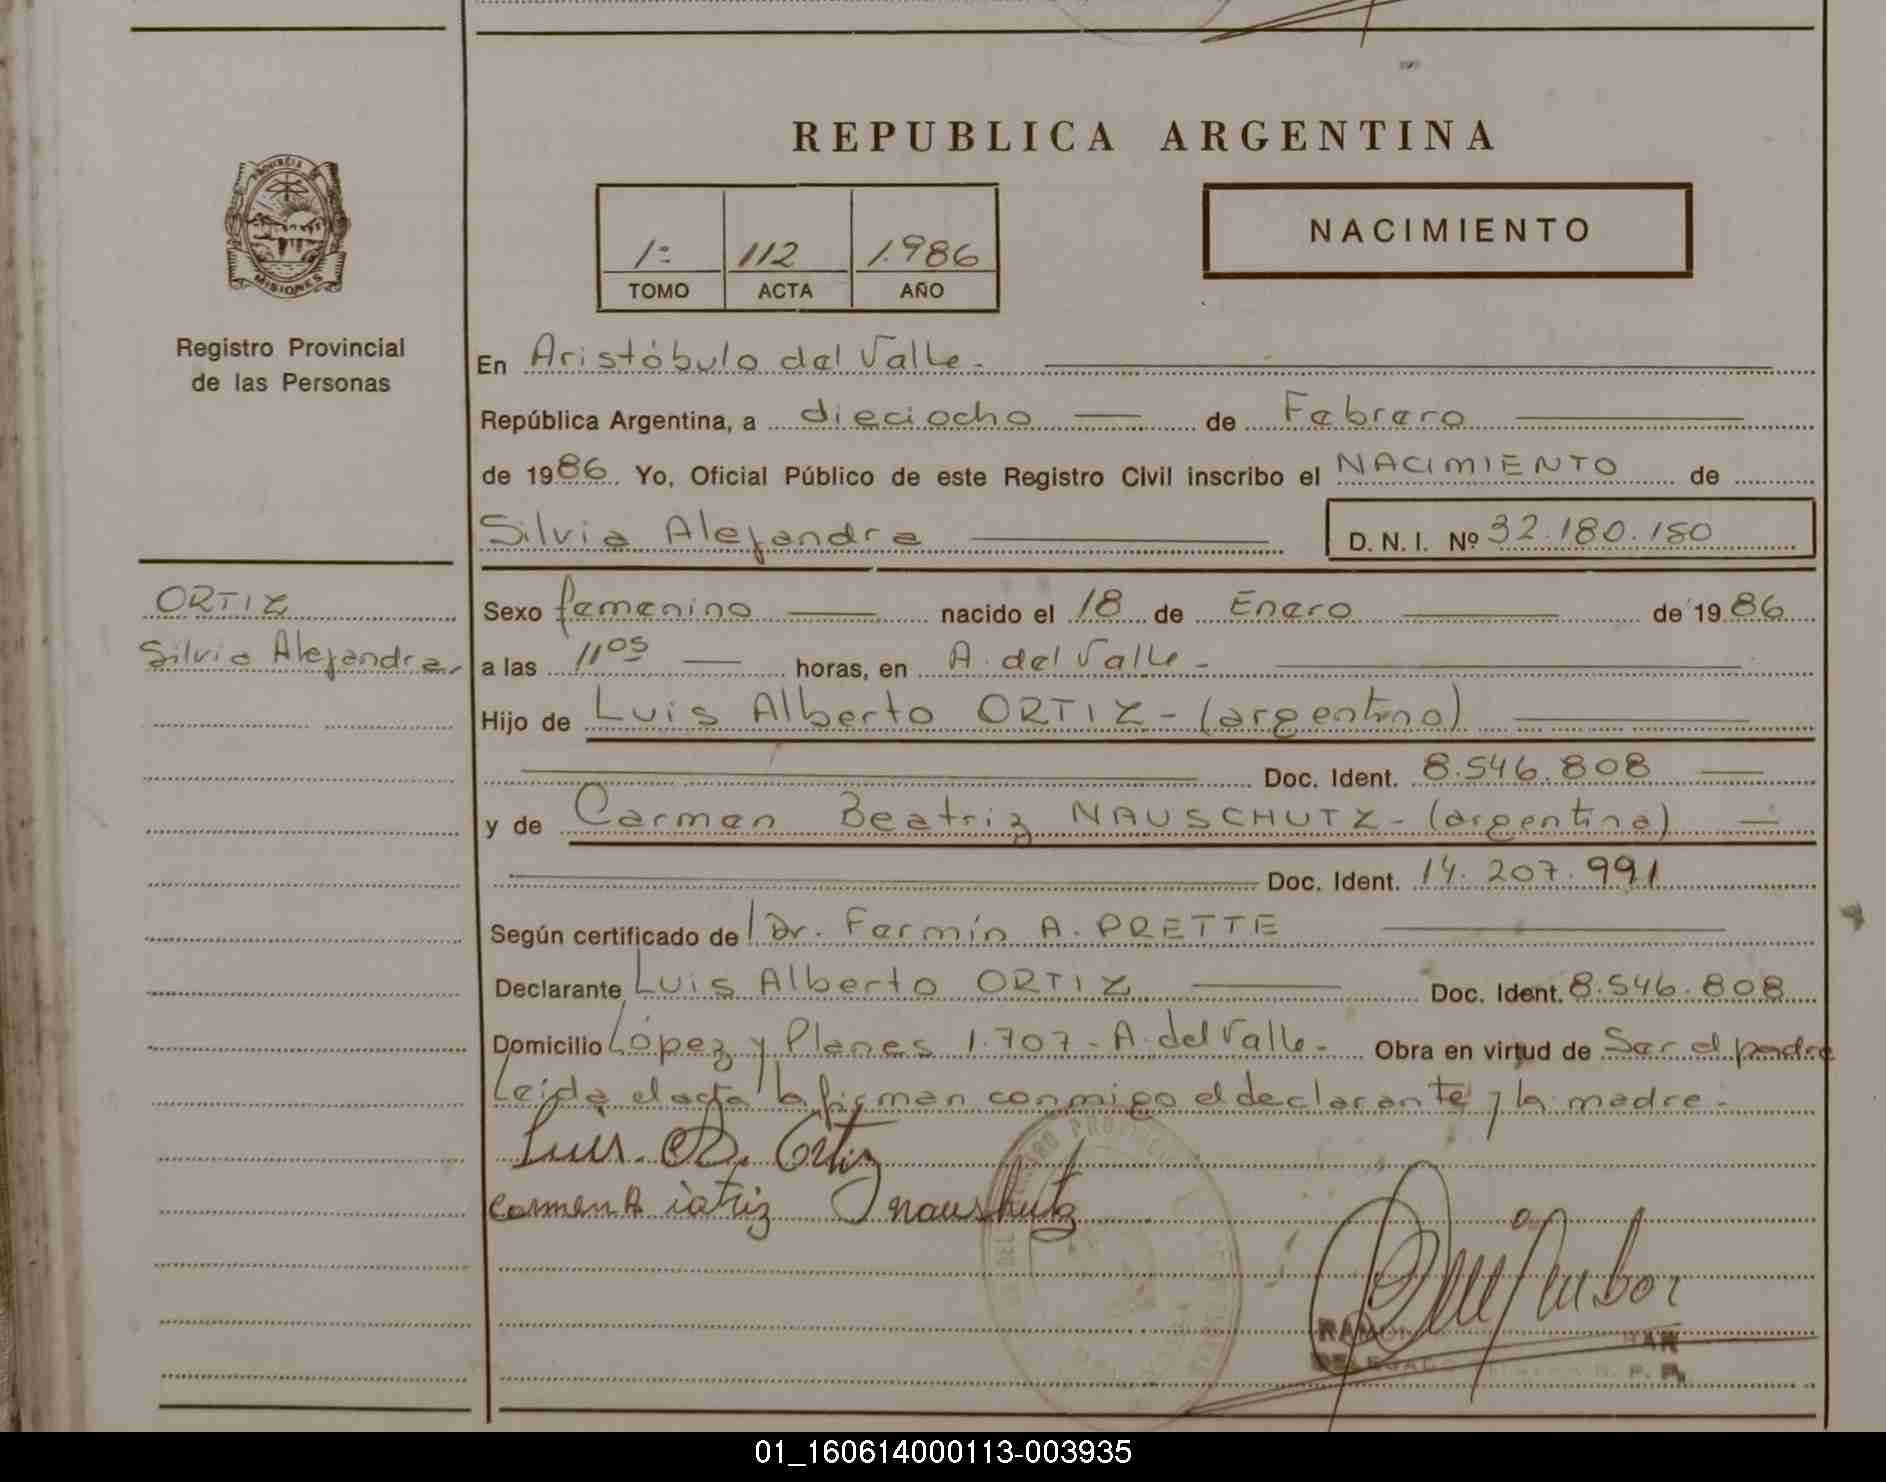 REPUBLICA ARGENTINA
PROVINCIA DE
MISIONES
1º 112 1.986
TOMO ACTA AÑO
NACIMIENTO
Registro Provincial
de las Personas
En Aristóbulo del Valle.-
República Argentina, a dieciocho de Febrero
de 1986. Yo, Oficial Público de este Registro Civil inscribo el NACIMIENTO de
Silvia Alejandra D. N. I. Nº 32.180.150
ORTIZ
Silvia Alejandra.
Sexo femenino nacido el 18 de Enero de 1986
a las 11 05 horas, en A. del Valle -
Hijo de Luis Alberto ORTIZ - (argentino)
Doc. Ident. 8.546.808
y de Carmen Beatriz NAUSCHUTZ - (argentina)
Doc. Ident. 14.207.991
Según certificado de Dr. Fermín A. PRETTE
Declarante Luis Alberto ORTIZ Doc. Ident. 8.546.808
Domicilio López y Planes 1.707 - A. del Valle - Obra en virtud de Ser el padre
Leída el acta la firman conmigo el declarante y la madre -
Luis. A. Ortiz
carmen B iatriz naushutz
01_160614000113-003935